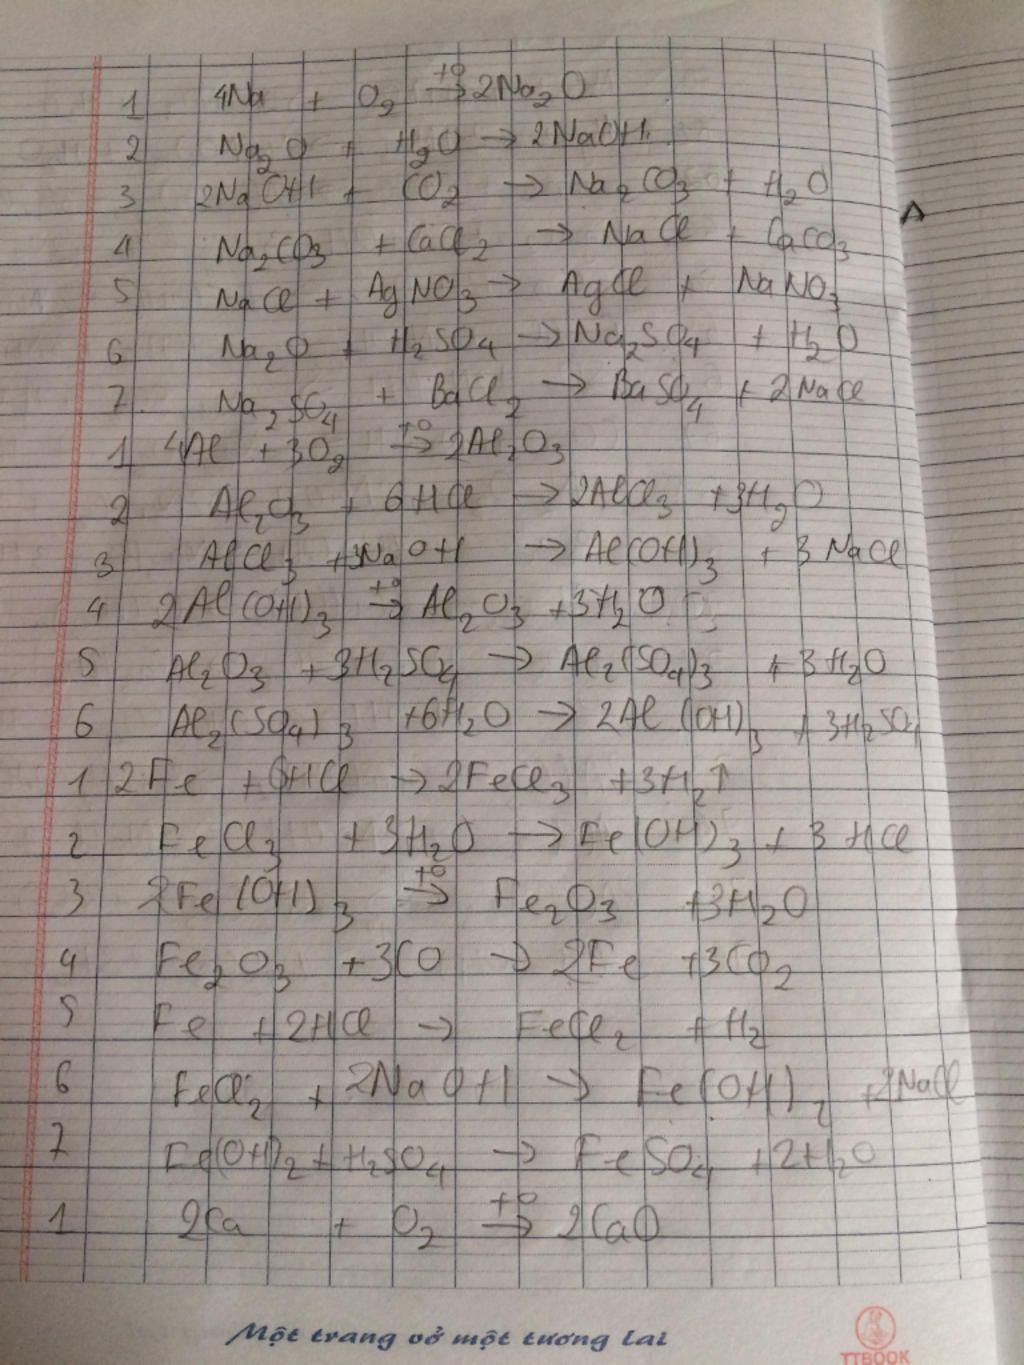 1 4Na + O₂ →(t°) 2Na₂O
2 Na₂O + H₂O → 2NaOH
3 2NaOH + CO₂ → Na₂CO₃ + H₂O
4 Na₂CO₃ + CaCl₂ → NaCl + CaCO₃
5 NaCl + AgNO₃ → AgCl + NaNO₃
6 Na₂O + H₂SO₄ → Na₂SO₄ + H₂O
7 Na₂SO₄ + BaCl₂ → BaSO₄ + 2NaCl
1 4Al + 3O₂ →(t°) 2Al₂O₃
2 Al₂O₃ + 6HCl → 2AlCl₃ + 3H₂O
3 AlCl₃ + 3NaOH → Al(OH)₃ + 3NaCl
4 2Al(OH)₃ →(t°) Al₂O₃ + 3H₂O
5 Al₂O₃ + 3H₂SO₄ → Al₂(SO₄)₃ + 3H₂O
6 Al₂(SO₄)₃ + 6H₂O → 2Al(OH)₃ + 3H₂SO₄
1 2Fe + 6HCl → 2FeCl₃ + 3H₂↑
2 FeCl₃ + 3H₂O → Fe(OH)₃ + 3HCl
3 2Fe(OH)₃ →(t°) Fe₂O₃ + 3H₂O
4 Fe₂O₃ + 3CO → 2Fe + 3CO₂
5 Fe + 2HCl → FeCl₂ + H₂
6 FeCl₂ + 2NaOH → Fe(OH)₂ + 2NaCl
7 Fe(OH)₂ + H₂SO₄ → FeSO₄ + 2H₂O
1 2Ca + O₂ →(t°) 2CaO
Một trang vở một tương lai
TTBOOK